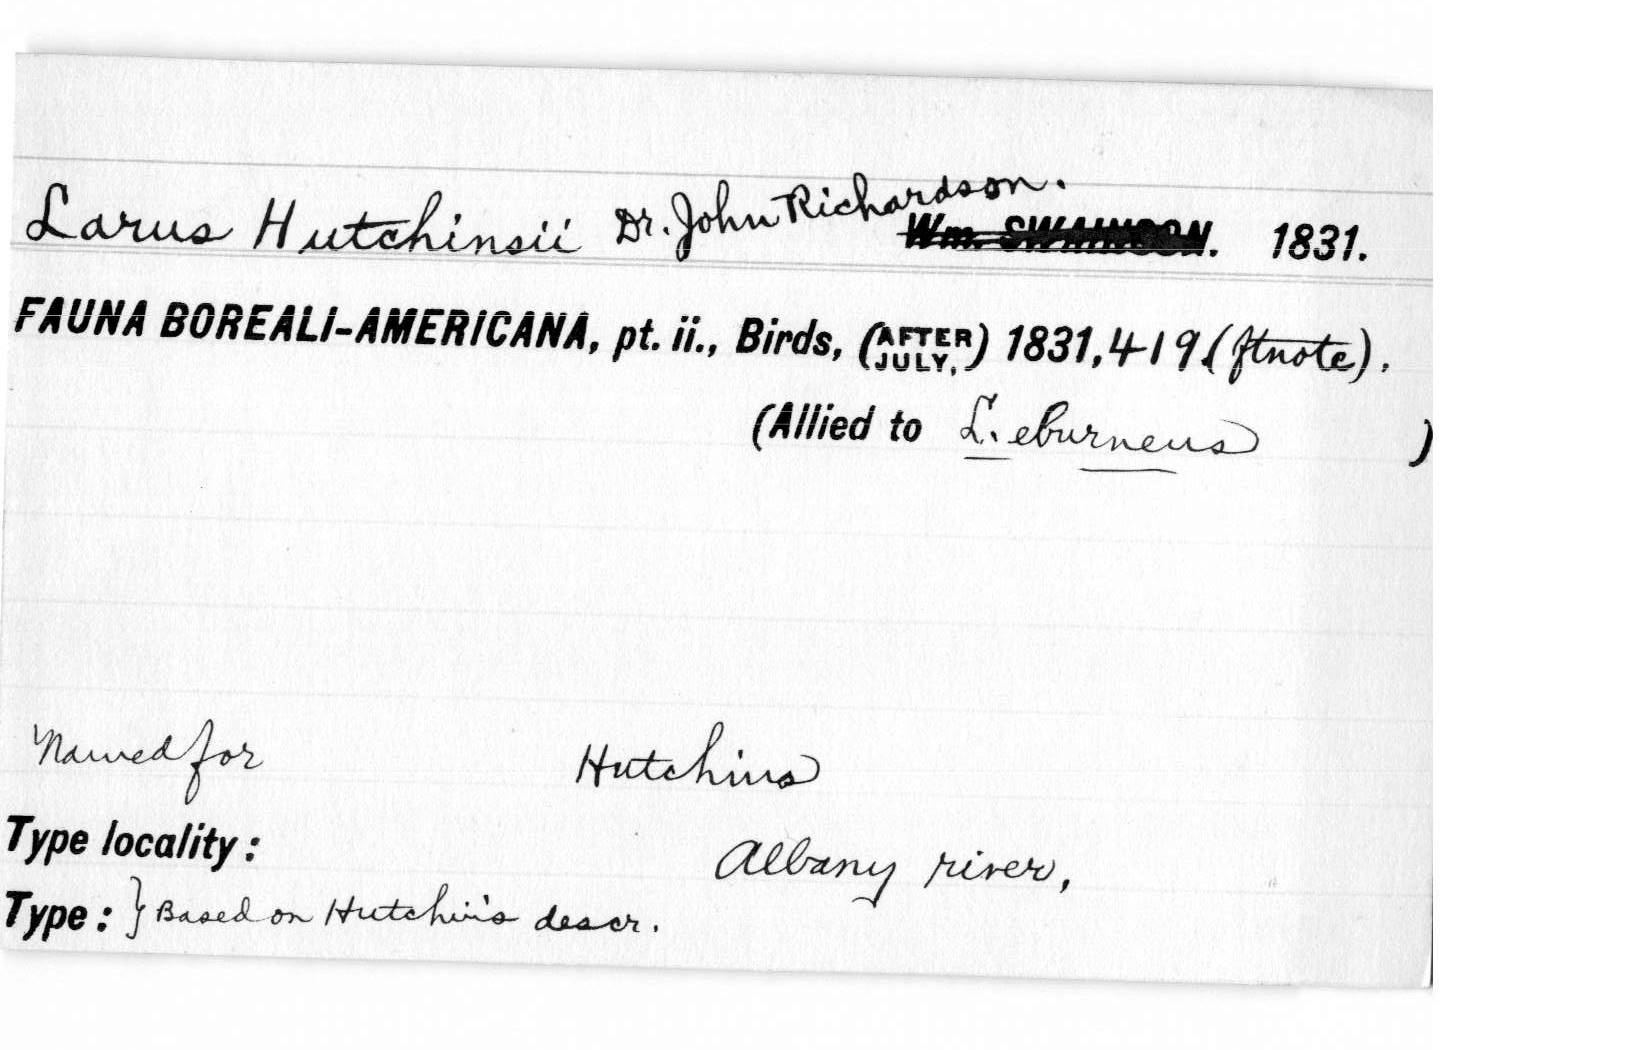 Larus Hutchinsii Dr. John Richardson. Wm. SWAINSON. 1831.
FAUNA BOREALI-AMERICANA, pt. ii., Birds, (AFTER JULY,) 1831, 419 (ftnote).
(Allied to L. eburneus )
Named for Hutchins
Type locality: Albany river,
Type: } Based on Hutchin's descr.